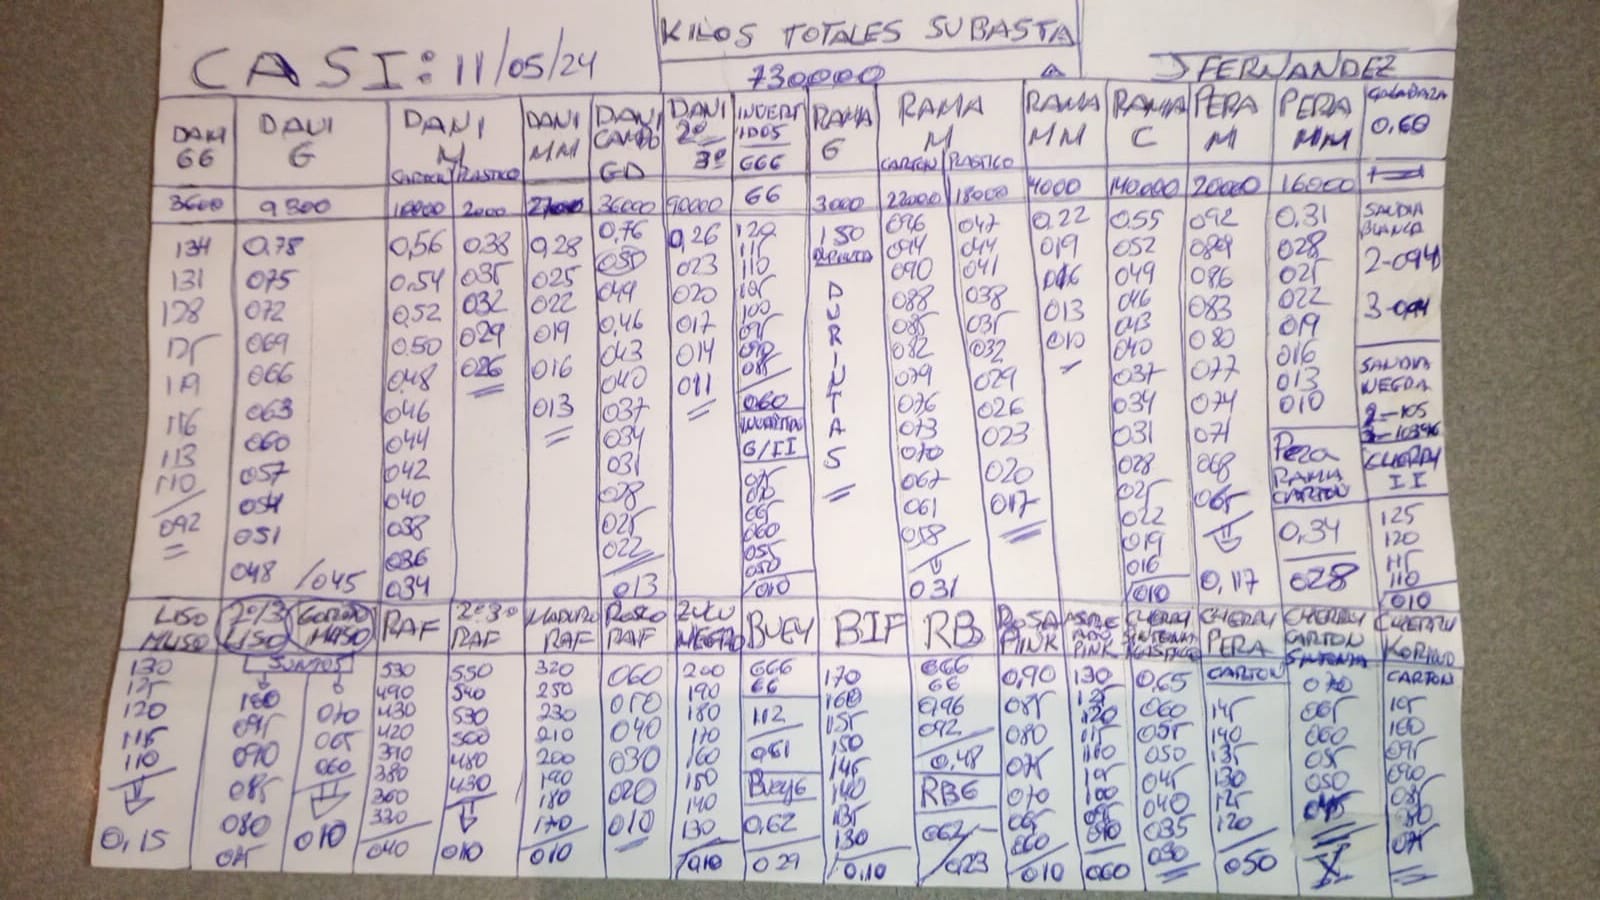 KILOS TOTALES SUBASTA
CASI: 11/05/24
730000
J FERNANDEZ
DANI GG
DANI G
DANI M CARTON PLASTICO
DANI MM
DANI CAMPO GD
DANI 2º 3º
INVERTIDOS GGG
RAMA G
RAMA M CARTON PLASTICO
RAMA MM
RAMA C
PERA M
PERA MM
CALABAZA 0,60
3600 9300 10000 2000 27000 36000 90000 GG 3000 22000 18000 4000 140.000 20000 16000
134 0,78 0,56 0,38 0,28 0,76 0,26 120 150 096 047 0,22 0,55 092 0,31 SANDIA BLANCA
131 075 0,54 035 025 050 023 115 094 044 019 052 089 028 2-094
128 072 0,52 032 022 049 020 110 D 090 041 016 049 086 025
125 069 0,50 029 019 0,46 017 105 U 088 038 013 046 083 022 3-044
119 066 048 026 016 043 014 100 R 085 035 010 043 080 019
116 063 046 013 040 011 095 I 082 032 040 077 016 SANDIA NEGRA
113 060 044 037 090 N 079 029 037 074 013 2-105
110 057 042 034 085 T 076 026 034 071 010
092 054 040 031 060 A 073 023 031 068 PERA RAMA CARTON CHERRY II
051 038 028 G/II S 070 020 028 065 0,34 125
048 /045 036 025 067 017 025 0,117 028 120
034 022 065 061 022 115
013 060 058 019 110
055 031 016 010
050 010
010
LISO MUSO
2º/3 LISO
GORDO MUSO
RAF
2º3º RAF
MADURO RAF
ROSCO RAF
ZULU NEGRO
BUEY
BIF
RB
ROSA PINK
PINK
CHERRY SINTONIA PLASTICO
CHERRY PERA
CHERRY CARTON SINTONIA
CHERRY KORINO
SUMOS
130 100 070 530 550 320 060 200 GGG 170 GGG 0,90 130 0,65 CARTON 070 CARTON
125 095 065 490 540 250 050 190 GG 160 GG 085 125 060 145 065 105
120 090 060 430 530 230 040 180 112 155 0,96 080 120 055 140 060 100
115 085 010 420 500 210 030 170 061 150 092 075 115 050 135 055 095
110 080 390 480 200 020 160 BUEY G 145 0,48 070 110 045 130 050 090
0,15 075 380 430 190 010 150 0,62 140 RBG 065 105 040 125 045 085
360 010 180 140 029 135 062 060 100 035 120 080
330 170 130 130 0,23 010 095 030 050 075
040 010 010 0,10 090
060